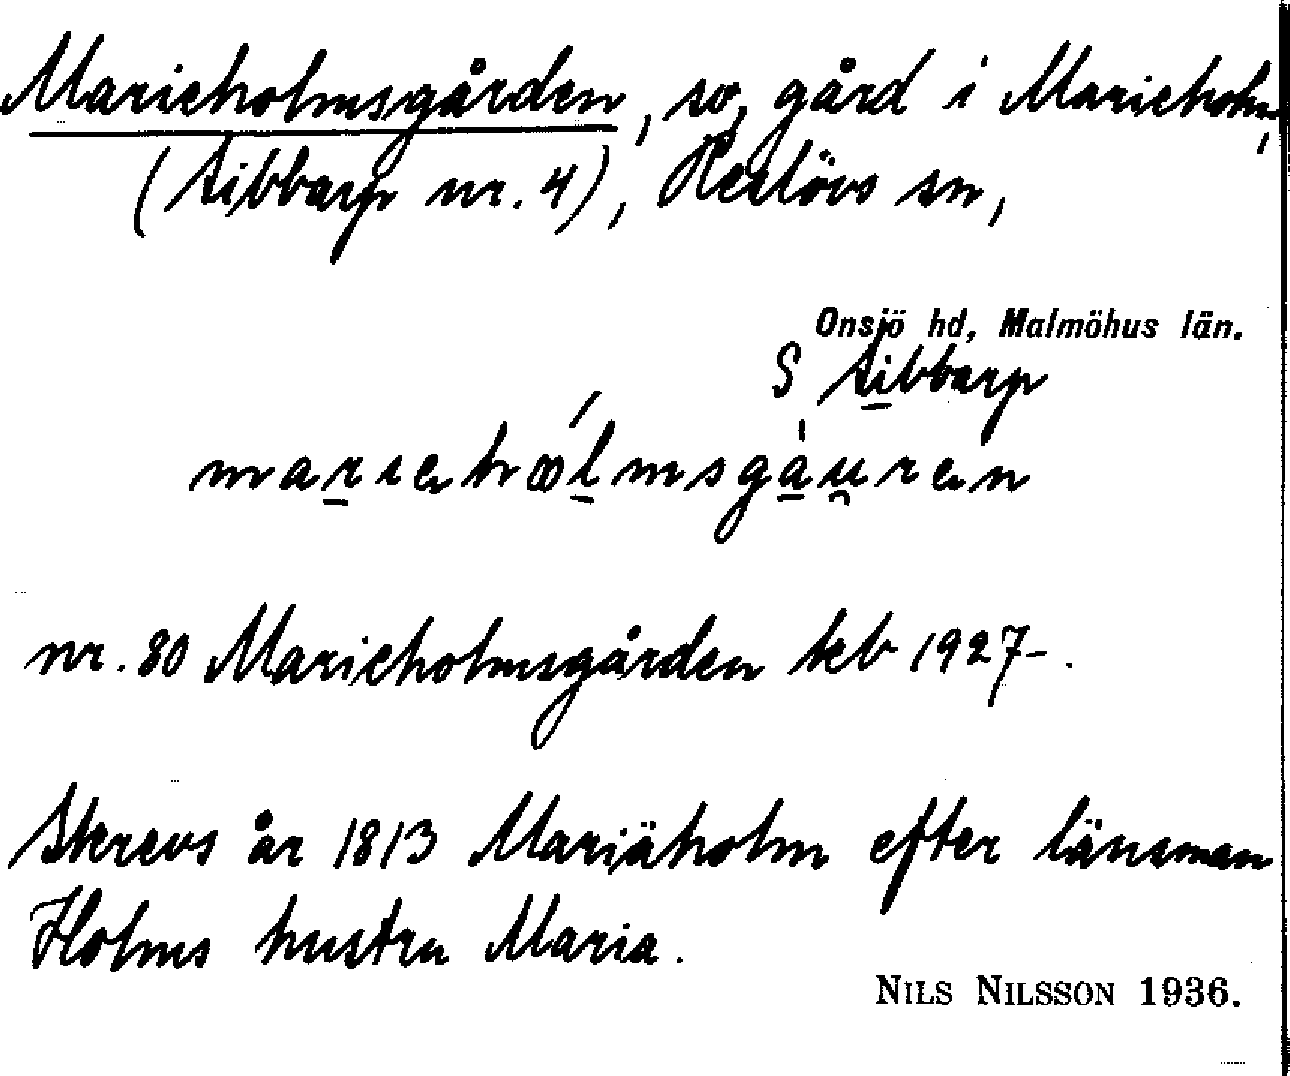 Marieholmsgården, so, gård i Marieholm,
(Sibbarp nr. 4), Reslövs sn,
Onsjö hd, Malmöhus län.
S Sibbarp
marıehœ́lmsgàu̯ren
nr. 80 Marieholmsgården teb 1927-.
Skrevs år 1813 Mariäholm efter länsman
Holms hustru Maria.
NILS NILSSON 1936.